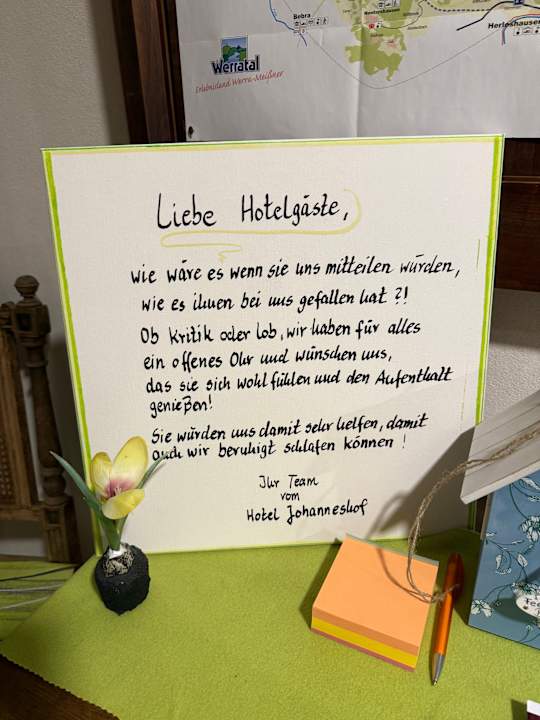 Bebra
Herleshausen
Werratal
Erlebnisland Werra-Meißner
Liebe Hotelgäste,
wie wäre es wenn sie uns mitteilen würden,
wie es ihnen bei uns gefallen hat ?!
Ob Kritik oder Lob, wir haben für alles
ein offenes Ohr und wünschen uns,
das sie sich wohl fühlen und den Aufenthalt
genießen!
Sie würden uns damit sehr helfen, damit
auch wir beruhigt schlafen können !
Ihr Team
vom
Hotel Johanneshof